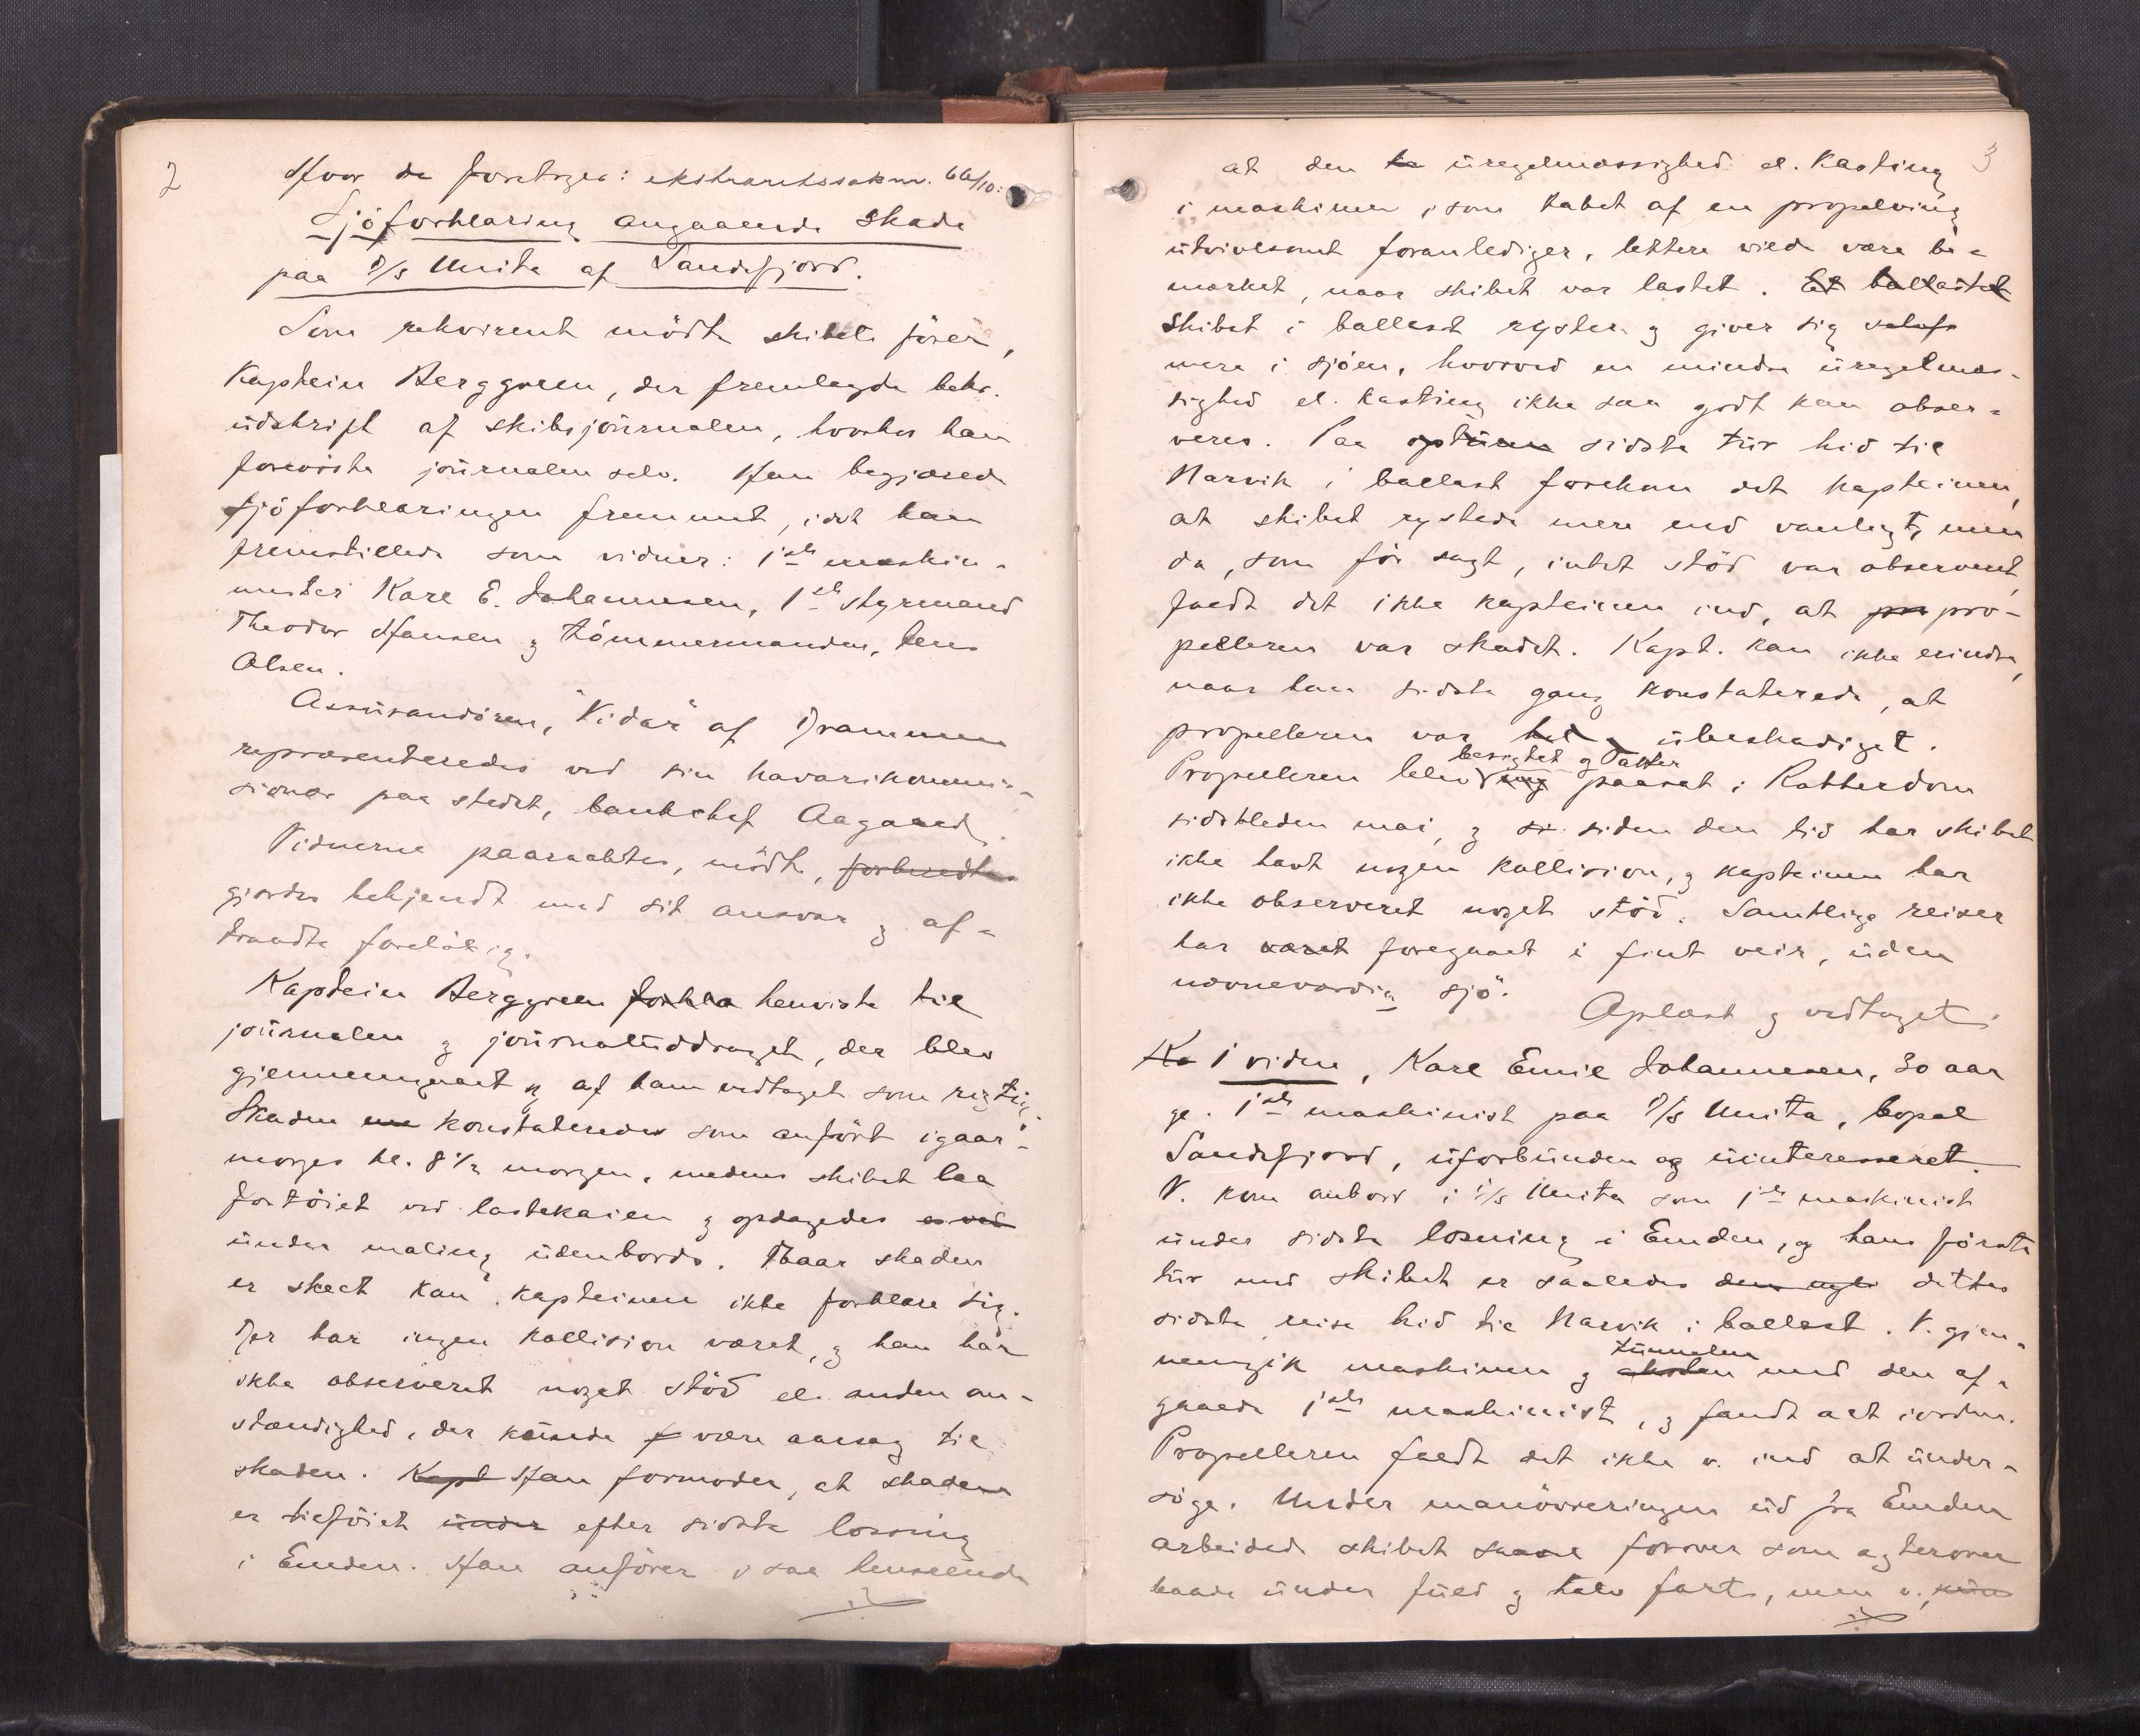 2
Hvor da foretages: ekstraretssak nr. 66/10:
Sjöforklaring angaaende skade
paa D/S Unita af Sandefjord.
Som rekvirent mödte skibets förer,
Kaptein Berggreen, der fremlagde bekr.
üdskrift af skibsjoürnalen, hvorhos han
foreviste joürnalen selv. Han begjærede
sjöforklaringen fremmet, idet han
fremstillede som vidner: 1ste maskin-
mester Kare E. Johannesen, 1ste styrmand
Theodor Hansen og tömmermanden, Jens
Olsen.
Assürandören, "Vidar" af Drammen
repræsenteredes ved sin havarikommis-
sionær paa stedet, bankchef Aagaard.
Vidnerne paaraabtes, mödte, forberedtes
gjordes bekjendt med sit ansvar og af-
traadte forelöbig.
Kaptein Berggreen forkla henviste til
joürnalen og joürnalüddraget, der blev
gjennemgaaet og af ham vedtaget som rigtig.
Skaden konstateredes som anfört igaar-
morges kl. 8 1/2 morgen, medens skibet laa
fortöiet ved lastekaien og opdagedes
ünder maling üdenbords. Naar skaden
er skeet kan kapteinen ikke forklare sig.
Der har ingen kollision været, og han har
ikke observeret noget stöd el. anden om-
stændighed, der künde f være aarsag til
skaden. Kapt Han formoder, at skaden
er tilföiet ünder efter sidste lossing
i Emden. Han anförer i saa henseende
3
at den üregelmæssighed el. kasting
i maskinen, som tabet af en propelving
ütvivlsomt foranlediger, lettere vilde være be-
mærket, naar skibet var lastet. Et ballastet
Skibet i ballast ryster og giver sig
mere i sjöen, hvorved en mindre üregelmæs-
sighed el. kasting ikke saa godt kan obser-
veres. Paa optüren sidste tür hid til
Narvik i ballast forekom det kapteinen,
at skibet rystede mere end vanligt, men
da, som för sagt, intet stöd var observeret,
faldt det ikke kapteinen ind, at pro-
pelleren var skadet. Kapt. kan ikke erindre,
naar han sidste gang konstaterede, at
propelleren var hel übeskadiget.
besigtet og
Propelleren blev paasat i Rotterdam
sidstleden mai, og siden den tid har skibet
ikke havt nogen kollision, og kapteinen har
ikke observeret noget stöd. Samtlige reiser
har været foregaaet i fint veir, üden
nævneværdig sjö.
Oplæst og vedtaget.
Ka 1 vidne, Kare Emil Johannesen, 30 aar
gl. 1ste maskinist paa D/S Unita, bopæl
Sandefjord, üforbünden og üinteresseret.
V. kom anbord i D/S Unita som 1ste maskinist
ünder sidste lossing i Emden, og hans förste
tür med skibet er saaledes dettes
sidste reise hid til Narvik i ballast. V. gjen-
tünnelen
nemgik maskinen og aksten med den af-
gaaede 1ste maskinist, og fandt alt iorden.
Propelleren faldt det ikke v. ind at ünder-
söge. Under manövreringen üd fra Emden
arbeidede skibet saavel forover som agterover
baade ünder füld og halv fart, men v. kün